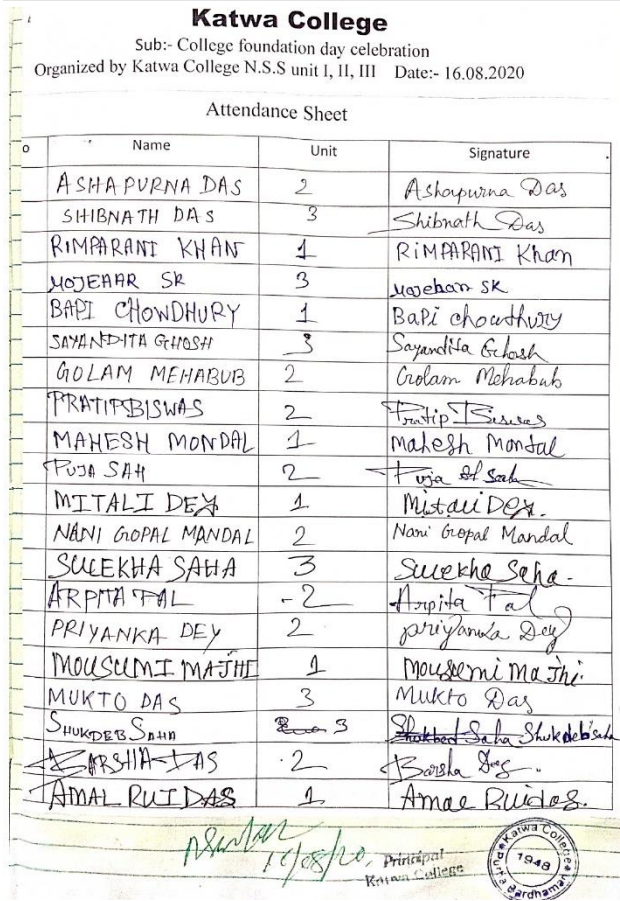 Katwa College
Sub:- College foundation day celebration
Organized by Katwa College N.S.S unit I, II, III Date:- 16.08.2020
Attendance Sheet
o Name Unit Signature
ASHAPURNA DAS 2 Ashapurna Das
SHIBNATH DAS 3 Shibnath Das
RIMPARANI KHAN 1 RiMPARANI Khan
MOJEHAR SK 3 Mojehar SK
BAPI CHOWDHURY 1 BaPi chowdhury
SAYANDITA GHOSH 3 Sayandita Ghosh
GOLAM MEHABUB 2 Golam Mehabub
PRATIP BISWAS 2 Pratip Biswas
MAHESH MONDAL 1 Mahesh Mondal
PUJA SAH 2 Puja
MITALI DEY 1 Mitali DEY.
NANI GOPAL MANDAL 2 Nani Gopal Mandal
SULEKHA SAHA 3 Sulekha Saha.
ARPITA PAL 2 Arpita Pal
PRIYANKA DEY 2 priyanka Dey
MOUSUMI MAJHI 1 Mousumi Majhi.
MUKTO DAS 3 Mukto Das
SHUKDEB SAHA 3 Shukdeb Saha
BARSHA DAS 2 Barsha Das.
AMAL RUIDAS 1 Amal Ruidas.
Principal
Katwa College
Katwa College
1948
Bardhaman